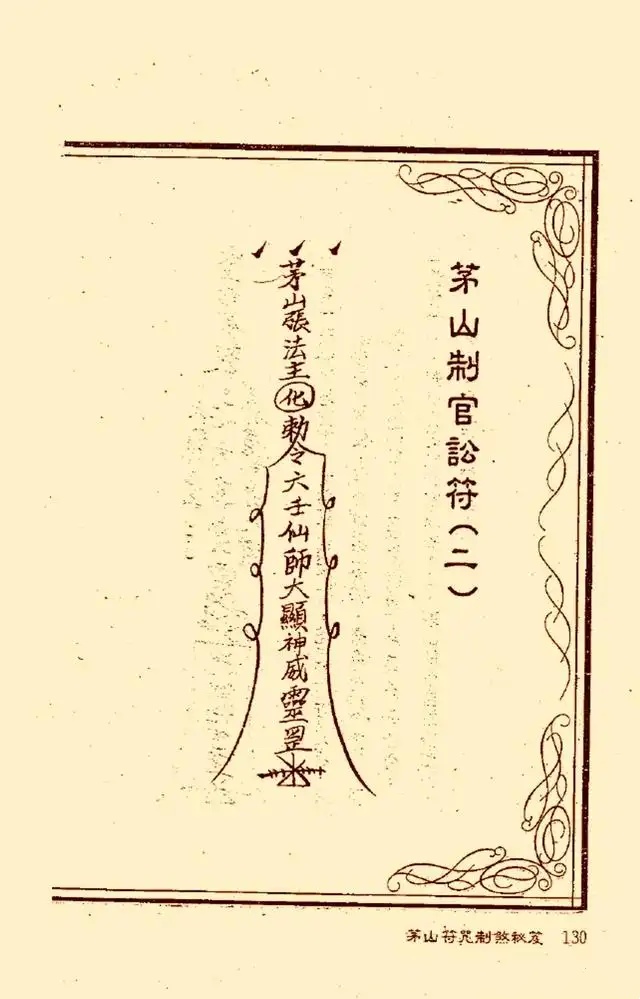 茅山制官訟符(二)
茅山張法主化勅令六壬仙師大顯神威靈罡
茅山符咒制煞秘笈 130